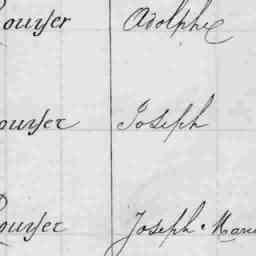 ouyser Adolphe
ouyser Joseph
Rouyser Joseph Marie